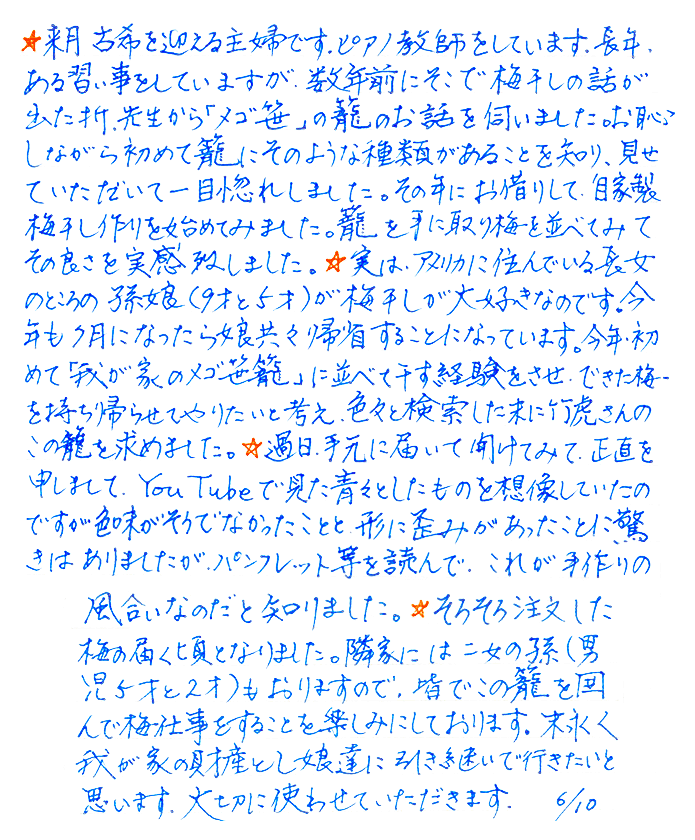 ☆来月古希を迎える主婦です。ピアノ教師をしています。長年、
ある習い事をしていますが、数年前にそこで梅干しの話が
出た折、先生から「メゴ笹」の籠のお話を伺いました。お恥ずか
しながら初めて籠にそのような種類があることを知り、見せ
ていただいて一目惚れしました。その年にお借りして、自家製
梅干し作りを始めてみました。籠を手に取り梅を並べてみて
その良さを実感致しました。☆実は、アメリカに住んでいる長女
のところの孫娘(9才と5才)が梅干しが大好きなのです。今
年も7月になったら娘共々帰省することになっています。今年初
めて「我が家のメゴ笹籠」に並べて干す経験をさせ、できた梅干し
を持ち帰らせてやりたいと考え、色々と検索した末に竹虎さんの
この籠を求めました。☆過日、手元に届いて開けてみて、正直を
申しまして、YouTubeで見た青々としたものを想像していたの
ですが色味がそうでなかったことと、形に歪みがあったことに驚
きはありましたが、パンフレット等を読んで、これが手作りの
風合いなのだと知りました。☆そろそろ注文した
梅の届く頃となりました。隣家には二女の孫(男
児5才と2才)もおりますので、皆でこの籠を囲
んで梅仕事をすることを楽しみにしております。末永く
我が家の財産とし娘達に引き継いで行きたいと
思います。大切に使わせていただきます。 6/10